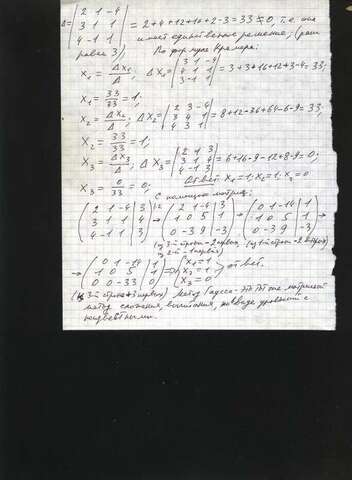 Δ = | 2 1 -4 | 3 1 1 | 4 -1 1 | = 2+4+12+16+2-3=33≠0, т.е. она
имеет единственное решение, (ранг
равен 3) По формуле Крамера:
X₁ = Δx₁/Δ, Δx₁ = | 3 1 -4 | 4 1 1 | 3 -1 1 | = 3+3+16+12+3-4=33;
X₁ = 33/33 = 1;
X₂ = Δx₂/Δ; Δx₂ = | 2 3 -4 | 3 4 1 | 4 3 1 | = 8+12-36+64-6-9=33;
X₂ = 33/33 = 1;
X₃ = Δx₃/Δ; Δx₃ = | 2 1 3 | 3 1 4 | 4 -1 3 | = 6+16-9-12+8-9=0;
X₃ = 0/33 = 0; Ответ: X₁=1; X₂=1; X₃=0
С помощью матриц:
( 2 1 -4 | 3 ; 3 1 1 | 4 ; 4 -1 1 | 3 ) → ( 2 1 -4 | 3 ; 1 0 5 | 1 ; 0 -3 9 | -3 ) → ( 0 1 -14 | 1 ; 1 0 5 | 1 ; 0 -3 9 | -3 ) →
(из 3-й строки - 2 первых, (из 1 строки - 2 второй)
из 2-й - 1 первых)
→ ( 0 1 -14 | 1 ; 1 0 5 | 1 ; 0 0 -33 | 0 ) ⇒ { X₁=1 X₂=1 X₃=0 } ответ.
(к 3-й строке + 3 первых) Метод Гаусса - это матричный
метод сложения, вычитания, в виде уравнений с
неизвестными.